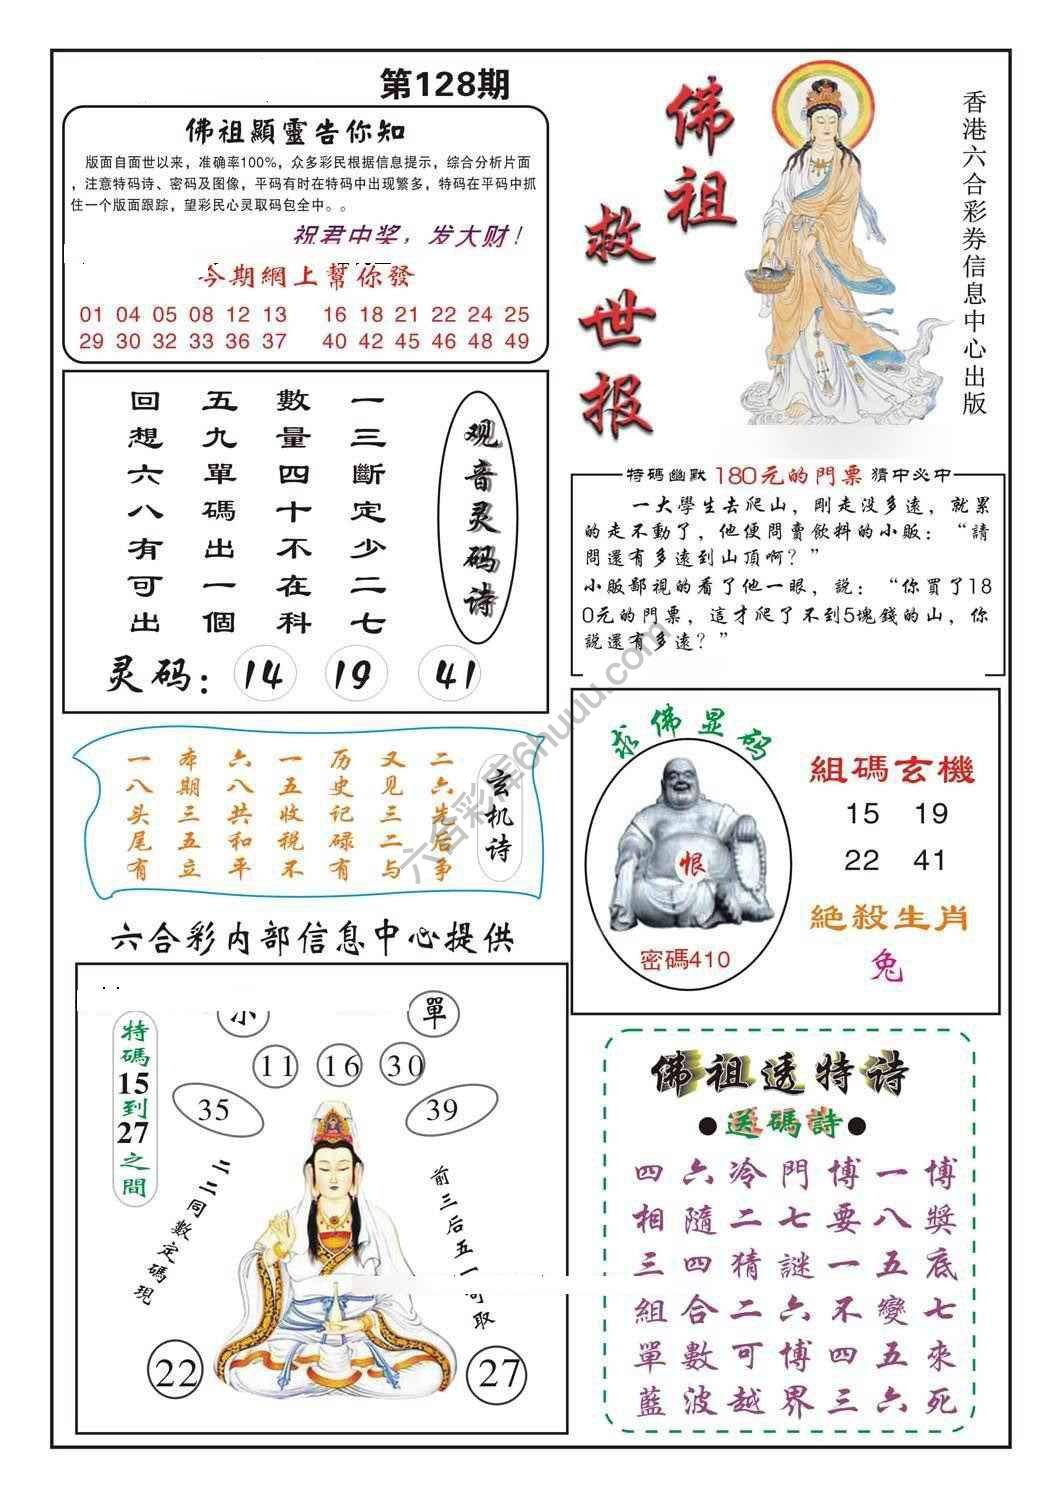 第128期
佛祖顯靈告你知
版面自面世以来，准确率100%，众多彩民根据信息提示，综合分析片面
，注意特码诗、密码及图像，平码有时在特码中出现繁多，特码在平码中抓
住一个版面跟踪，望彩民心灵取码包全中。。
祝君中奖，发大财！
今期網上幫你發
01 04 05 08 12 13 16 18 21 22 24 25
29 30 32 33 36 37 40 42 45 46 48 49
佛祖
救世报
香港六合彩券信息中心出版
观音灵码诗
一三斷定少二七
數量四十不在科
五九單碼出一個
回想六八有可出
灵码：14 19 41
特碼幽默 180元的門票 猜中必中
一大學生去爬山，剛走没多遠，就累
的走不動了，他便問賣飲料的小販：“請
問還有多遠到山頂啊？”
小販鄙視的看了他一眼，説：“你買了18
0元的門票，這才爬了不到5塊錢的山，你
説還有多遠？”
玄机诗
二六先后争
又见三二与
历史记碌有
一五收税不
六八共和平
本期三五立
一八头尾有
求佛显码
恨
密碼410
組碼玄機
15 19
22 41
絶殺生肖
兔
六合彩内部信息中心提供
單
特碼15到27之間
11 16 30
35 39
二二同數定碼現
前三后五一
取
22 27
佛祖透特诗
●送碼詩●
四六冷門博一博
相隨二七要八獎
三四猜謎一五底
組合二六不變七
單數可博四五來
藍波越界三六死
六合彩库6huuu.com